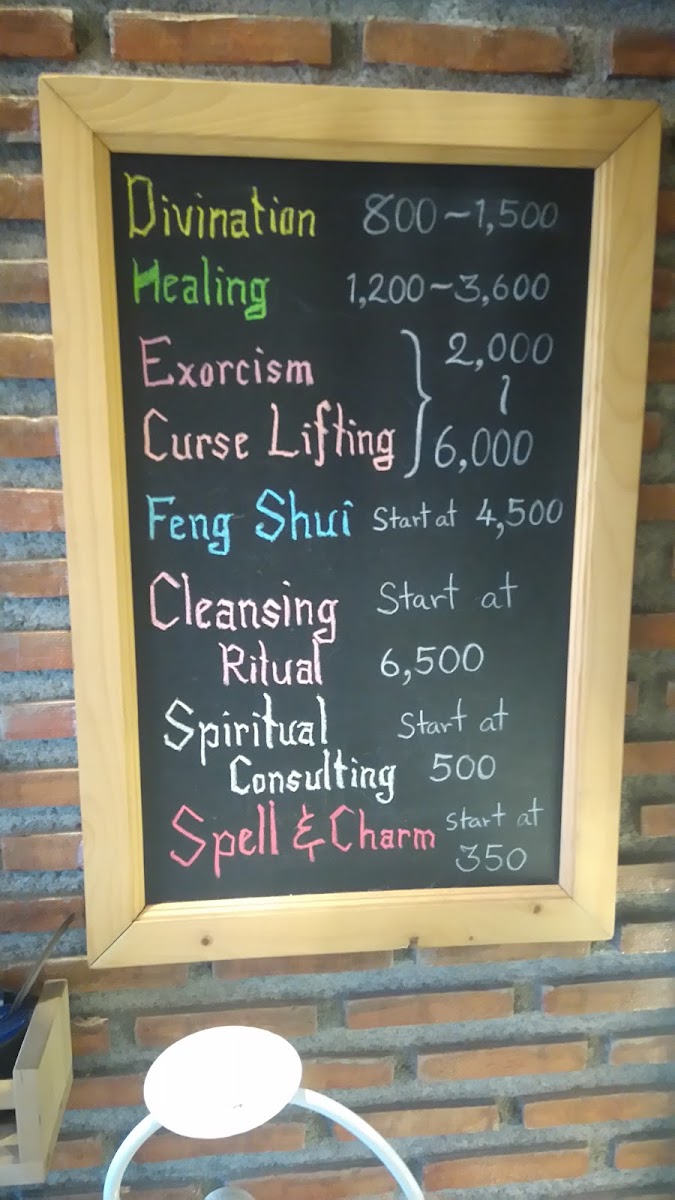 Divination 800~1,500
Healing 1,200~3,600
Exorcism } 2,000
~
Curse Lifting 6,000
Feng Shui Start at 4,500
Cleansing Start at
Ritual 6,500
Spiritual Start at
Consulting 500
Spell & Charm Start at
350